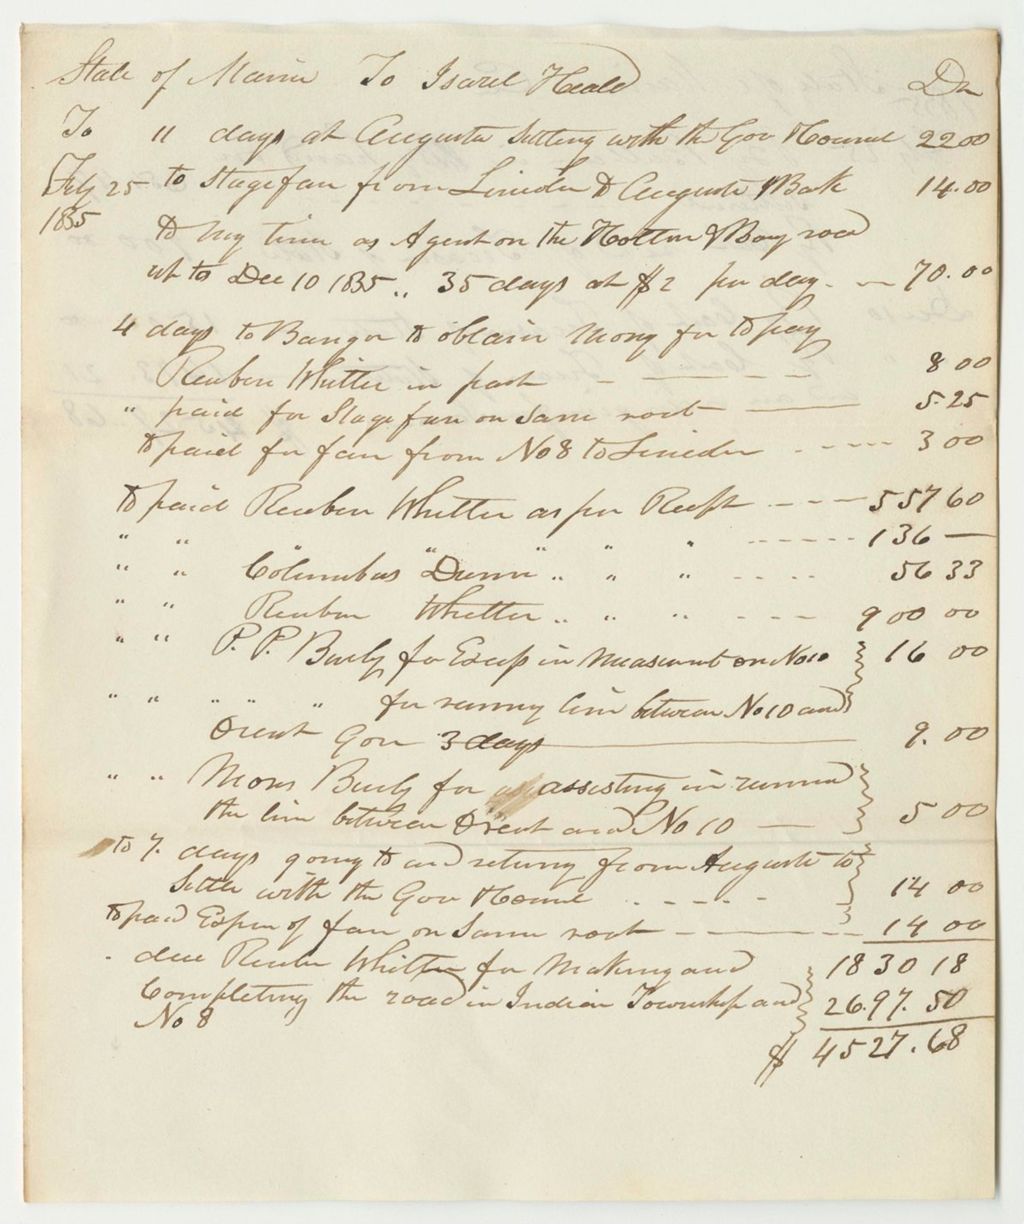 State of Maine To Isarel Heald Dr
To 11 days at Augusta Setting with the Gov & Councel 22 00
Feby 25 to Stage fare from Lincoln to Augusta & Back 14.00
1835
to my time as Agent on the Holton & Bay road
up to Dec 10 1835 ,, 35 days at $2 per day - — 70.00
4 days to Bangor to obtain mony for to pay
Reuben Whitter in part - — — — 8 00
" paid for Stage fare on Same root — — 5.25
to paid for fare from No 8 to Lincoln - - - - 3 00
to paid Reuben Whitter as per Recpt - - - 557 60
" " " " " " " - - - - - - 136 —
" " Columbus Dunn " " " - - - - 56 33
" " Reuben Whitter " " " - - - 900 00
" " P. P. Burly for Excep in measurment on No 10 } 16 00
" " " " " for runny line between No 10 and }
Orient Gore 3 days — 9.00
" " Moses Burly for assisting in runnind }
the line between Orient and No 10 — } 5 00
to 7. days going to and returny from Augusta to }
Settle with the Gov & Councl - - - - - } 14 00
to paid Expen of fare on Same root - — — - - 14 00
due Reuben Whitter for Making and } 1830 18
Completing the road in Indian Township and } 26.97.50
No 8
$ 4527.68